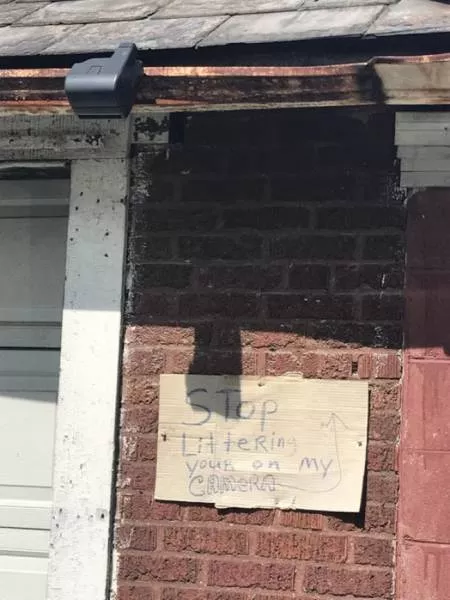 STop
LitteRing
youR on my
CAmeRA